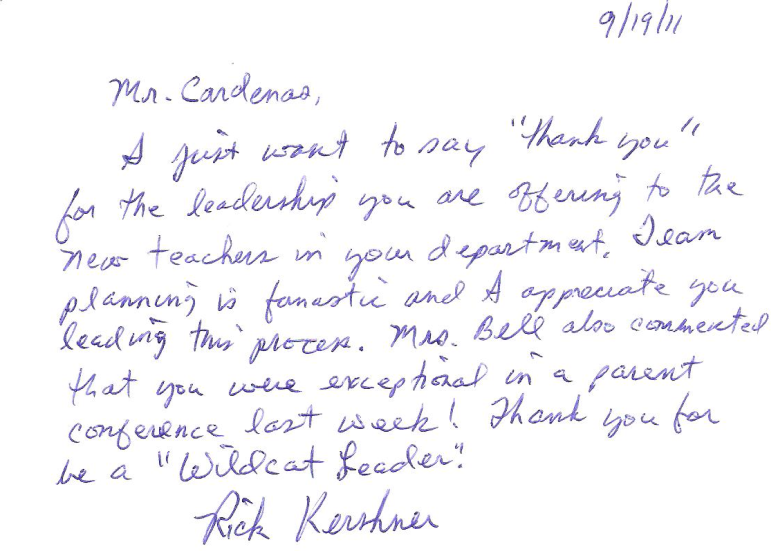 9/19/11
Mr. Cardenas,
I just want to say "thank you"
for the leadership you are offering to the
new teachers in your department. Team
planning is fanastic and I appreciate you
leading this process. Mrs. Bell also commented
that you were exceptional in a parent
conference last week! Thank you for
be a "Wildcat Leader".
Rick Kershner